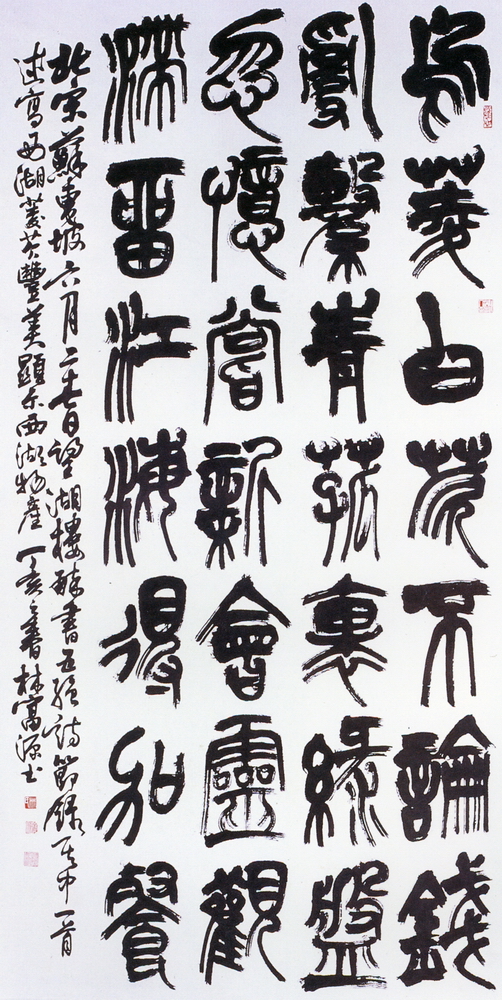 烏菱白芡不論錢
亂繫青菰裹綠盤
忽憶嘗新會靈觀
滯留江海得加餐
北宋蘇東坡六月二十七日望湖樓醉書五絕詩節錄其中一首
述寫西湖菱芡豐美顯示西湖物產丁亥之春林富源書